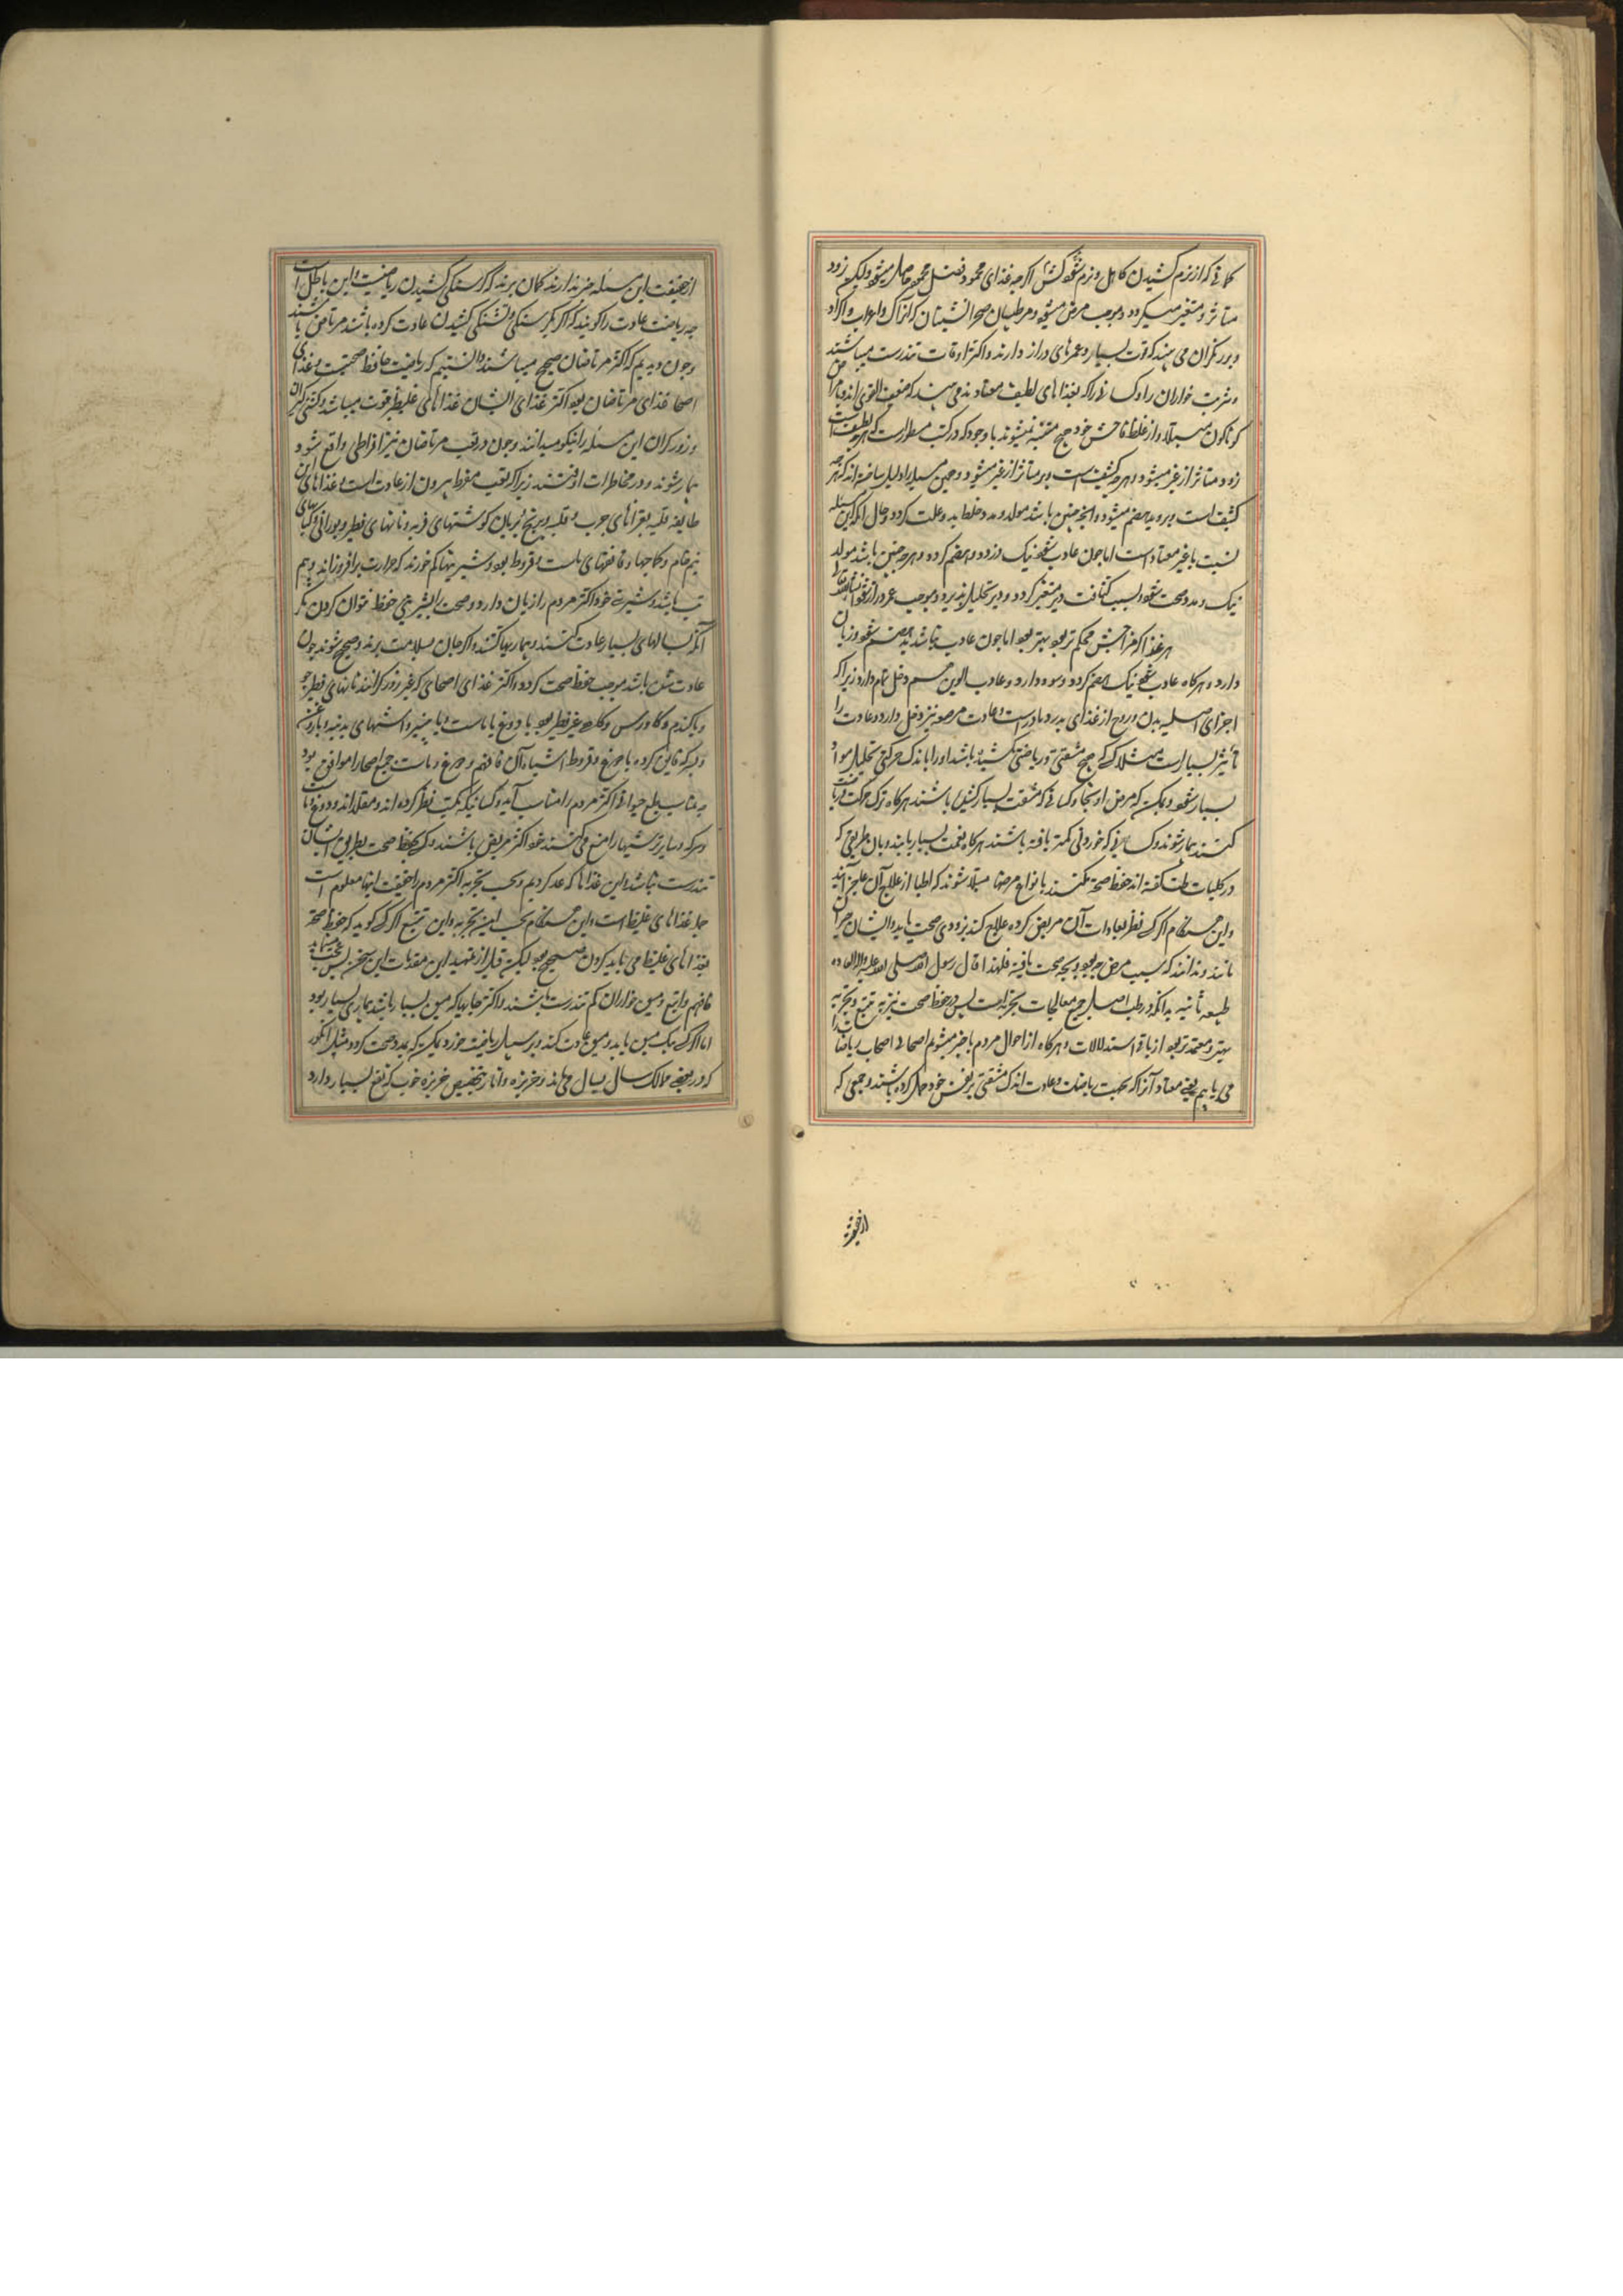 کمانی که از نرم کشیدن کاهل و نرم شود کش اگرچه غذای محمود فضل محمود حاصل میشود لیکن زود
متاثر و متغیر میگردد و موجب مرض میشود و مر طبیبان صحرانشینان که اتراک و اعراب و اکراد
و برزگران می بیند که قوت بسیار و عمرهای دراز دارند و اکثر اوقات تندرست میباشند
و شربت خواران را و کسانی را که بغذاهای لطیف معتادند می بیند که ضعیف القوی اند و بامراض
گوناگون مبتلا و از غلط فاحش خود هیچ متنبه نمیشوند با وجود که در کتب مسطور است که هرچه لطیف است
زود متاثر از غیر میشود و هرچه کثیف است دیر متاثر از غیر میشود و همین مسئله را دلیل ساخته اند که هرچه
کثیف است دیر و بد هضم میشود و آنچه چنین باشد مولد و ممد خلط بد و علت گردد و حال آنکه این مسئله
نسبت با غیر معتاد است اما چون عادت شود نیک و زود هضم گردد و هرچه چنین باشد مولد
نیک و ممد صحت شود بسبب کثافت دیر متغیر گردد و دیر تحلیل پذیرد و موجب عمر دراز شود انشاءالله تعالی
هر غذا که مزاجش محکم تر بود بهتر بود اما چون عادت نباشد بد هضم شود و زیان
دارد و هرگاه عادت شود نیک هضم گردد و سود دارد و عادت والدین هم دخل تمام دارد زیرا که
اجزای اصلیه بدن و روح از غذای پدر و مادر است و عادت مرضعه نیز دخل دارد و عادت را
تاثیر بسیار است مثلا کسی که هیچ مشقتی و ریاضتی نکشیده باشد او را باندک حرکتی تحلیل مواد
بسیار شود و ممکن که مرض او بیجا و کسانی که مشقت بسیار کشیده باشند هرگاه ترک حرکت و ریاضت
کنند بیمار شوند و کسانی که خوردنی کمتر یافته باشند هرگاه نعمت بسیار یابند و بآن طریقی که
در کلیات طب گفته اند حفظ صحت نکنند بانواع مرضها مبتلا شوند که اطبا از علاج آن عاجز آیند
و این هنگام اگر کسی نظر بعادات آن مریض کرده علاج کند بزودی صحت یابد و ایشان حیران
مانند و ندانند که سبب مرض چه بود و بچه صحت یافته فلهذا قال رسول الله صلی الله علیه و آله العاده
طبیعه ثانیه بدانکه در طب اصل جمیع معالجات تجربه است پس در حفظ صحت نیز به تتبع و تجربه
بهتر و معتمدتر بود از باقی استدلالات و هرگاه از احوال مردم باخبر میشویم اصحا فی اصحاب ریاضات را
می یابیم یعنی معتاد آنرا که بحسب ریاضت و عادت اندک مشقتی بر نفس خود حمل کرده باشند و جمعی که
از حقیقت
از حقیقت این مسئله خبر ندارند گمان برند که گرسنگی کشیدن ریاضت و این باطل است
چه ریاضت عادت را گویند که اگر بگرسنگی و تشنگی کشیدن عادت کرده باشند مرتاض باشند
و چون دیدیم که اکثر مرتاضان صحیح میباشند دانستیم که ریاضت حافظ صحت است و غذای
اصحا غذای مرتاضان بود اکثر غذای ایشان غذاهای غلیظ پرقوت میباشد و کشتی گیران
و زورگران این مسئله را نیکو میدانند و چون در تعب مرتاضان نیز افراطی واقع شود
بیمار شوند و در مخاطرات افتند زیرا که تعب مفرط بیرون از عادت است و غذاهای آن
طایفه قلیه بقراهای چرب و قلیه و برنج بریان گوشتهای فربه و نانهای فطیر و بورانی و کبابهای
نیم خام و کاچیها و قاتقهای ماست و قروط بود و شیرینیها کم خورند که حرارت برافروزاند و هم
تب باشد و شیرینی خود اکثر مردم را زیان دارد و صحت البشر بشیرینی حفظ نتوان کردن مگر
آنکه سالهای بسیار عادت کنند و بیماریها کشند و اگر جان بسلامت برند و صحیح شوند چون
عادت شان باشد موجب حفظ صحت گردد و اکثر غذای اصحای که غیر زورگرانند نانهای فطیر جو
و یا گندم و گاورس و گاه غیر فطیر بود با دوغ یا ماست و یا پنیر و آشتهای بدنیه و یا روغن
و سرکه قاتق کرده یا دوغ و قروط اشیاء آن قاتق و دوغ و ماست جمیع اصحا را موافق بود
چه مناسب طبع حیوانی اکثر مردم را مناسب آمد و کسانیکه بکتب نظر کرده اند و مقلد اند و دوغ و ماست
و سرکه و سایر ترشیها را منع می کنند خود اکثر مریض باشند و کسی بحفظ صحت بطریق ایشان
تندرست نباشد و این غذاها که عد کردیم و بحسب تجربه اکثر مردم را حقیقت اینها معلوم است
جمله غذاهای غلیظ است و این هنگام بحسب این تجربه و این تتبع اگر کسی گوید که حفظ صحت
بغذاهای غلیظ می باید کردن صحیح بود لیکن قبل از تمهید این مقدمات این سخن بس عجب مینماید
فافهم و اتبع و میوه خواران کم تندرست باشند و اکثر جاها که میوه بسیار باشد بیماری بسیار بود
اما اگر کسی یک میوه یابد و میوه عادت کند و بر سبیل ریاضت خورد ممکن که ممد صحت گردد مثل انگور
که در بعضی ممالک سال بسال می ماند و خربزه و انار بتخصیص خربزه خوب که نفع بسیار دارد